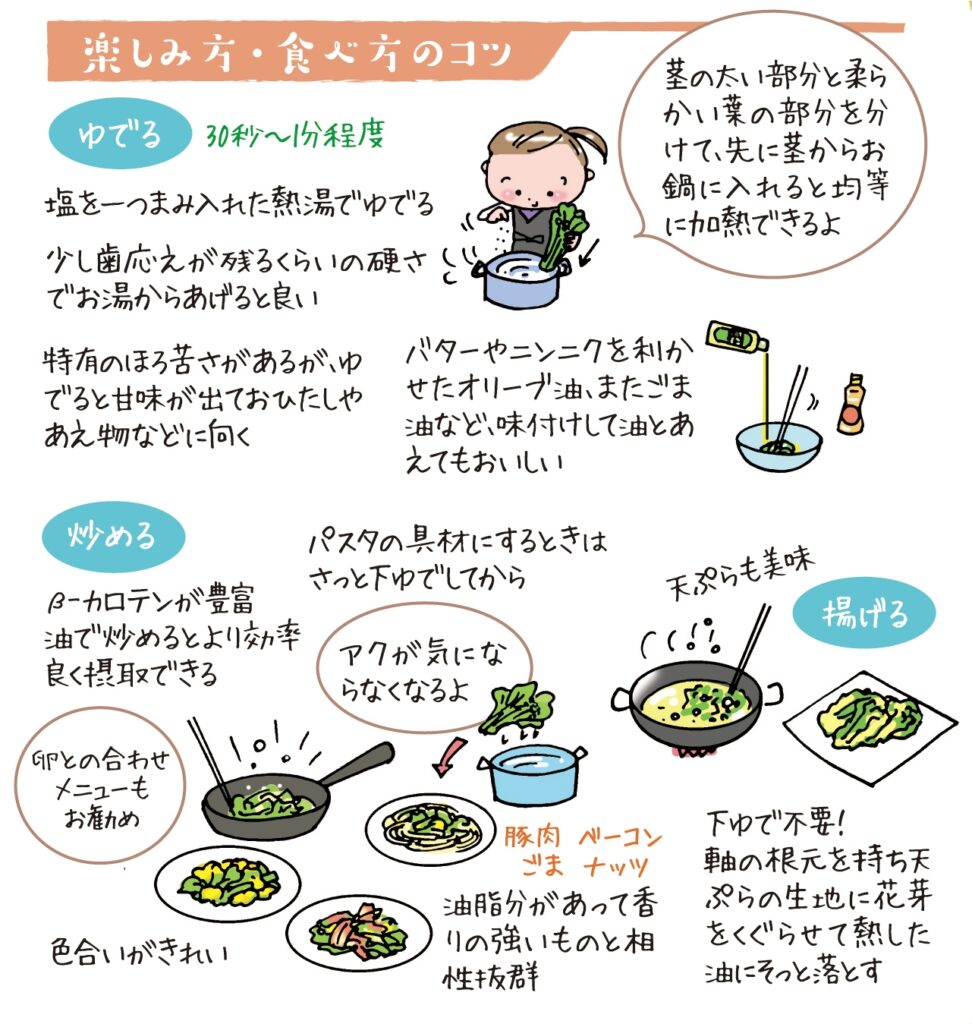 楽しみ方・食べ方のコツ
ゆでる
30秒〜1分程度
塩を一つまみ入れた熱湯でゆでる
少し歯応えが残るくらいの硬さ
でお湯からあげると良い
茎の太い部分と柔ら
かい葉の部分を分
けて、先に茎からお
鍋に入れると均等
に加熱できるよ
特有のほろ苦さがあるが、ゆ
でると甘味が出ておひたしや
あえ物などに向く
バターやニンニクを利か
せたオリーブ油、またごま
油など、味付けして油とあ
えてもおいしい
炒める
β-カロテンが豊富
油で炒めるとより効率
良く摂取できる
パスタの具材にするときは
さっと下ゆでしてから
アクが気にな
らなくなるよ
卵との合わせ
メニューも
お勧め
色合いがきれい
豚肉 ベーコン
ごま ナッツ
油脂分があって香
りの強いものと相
性抜群
天ぷらも美味
揚げる
下ゆで不要!
軸の根元を持ち天
ぷらの生地に花芽
をくぐらせて熱した
油にそっと落とす